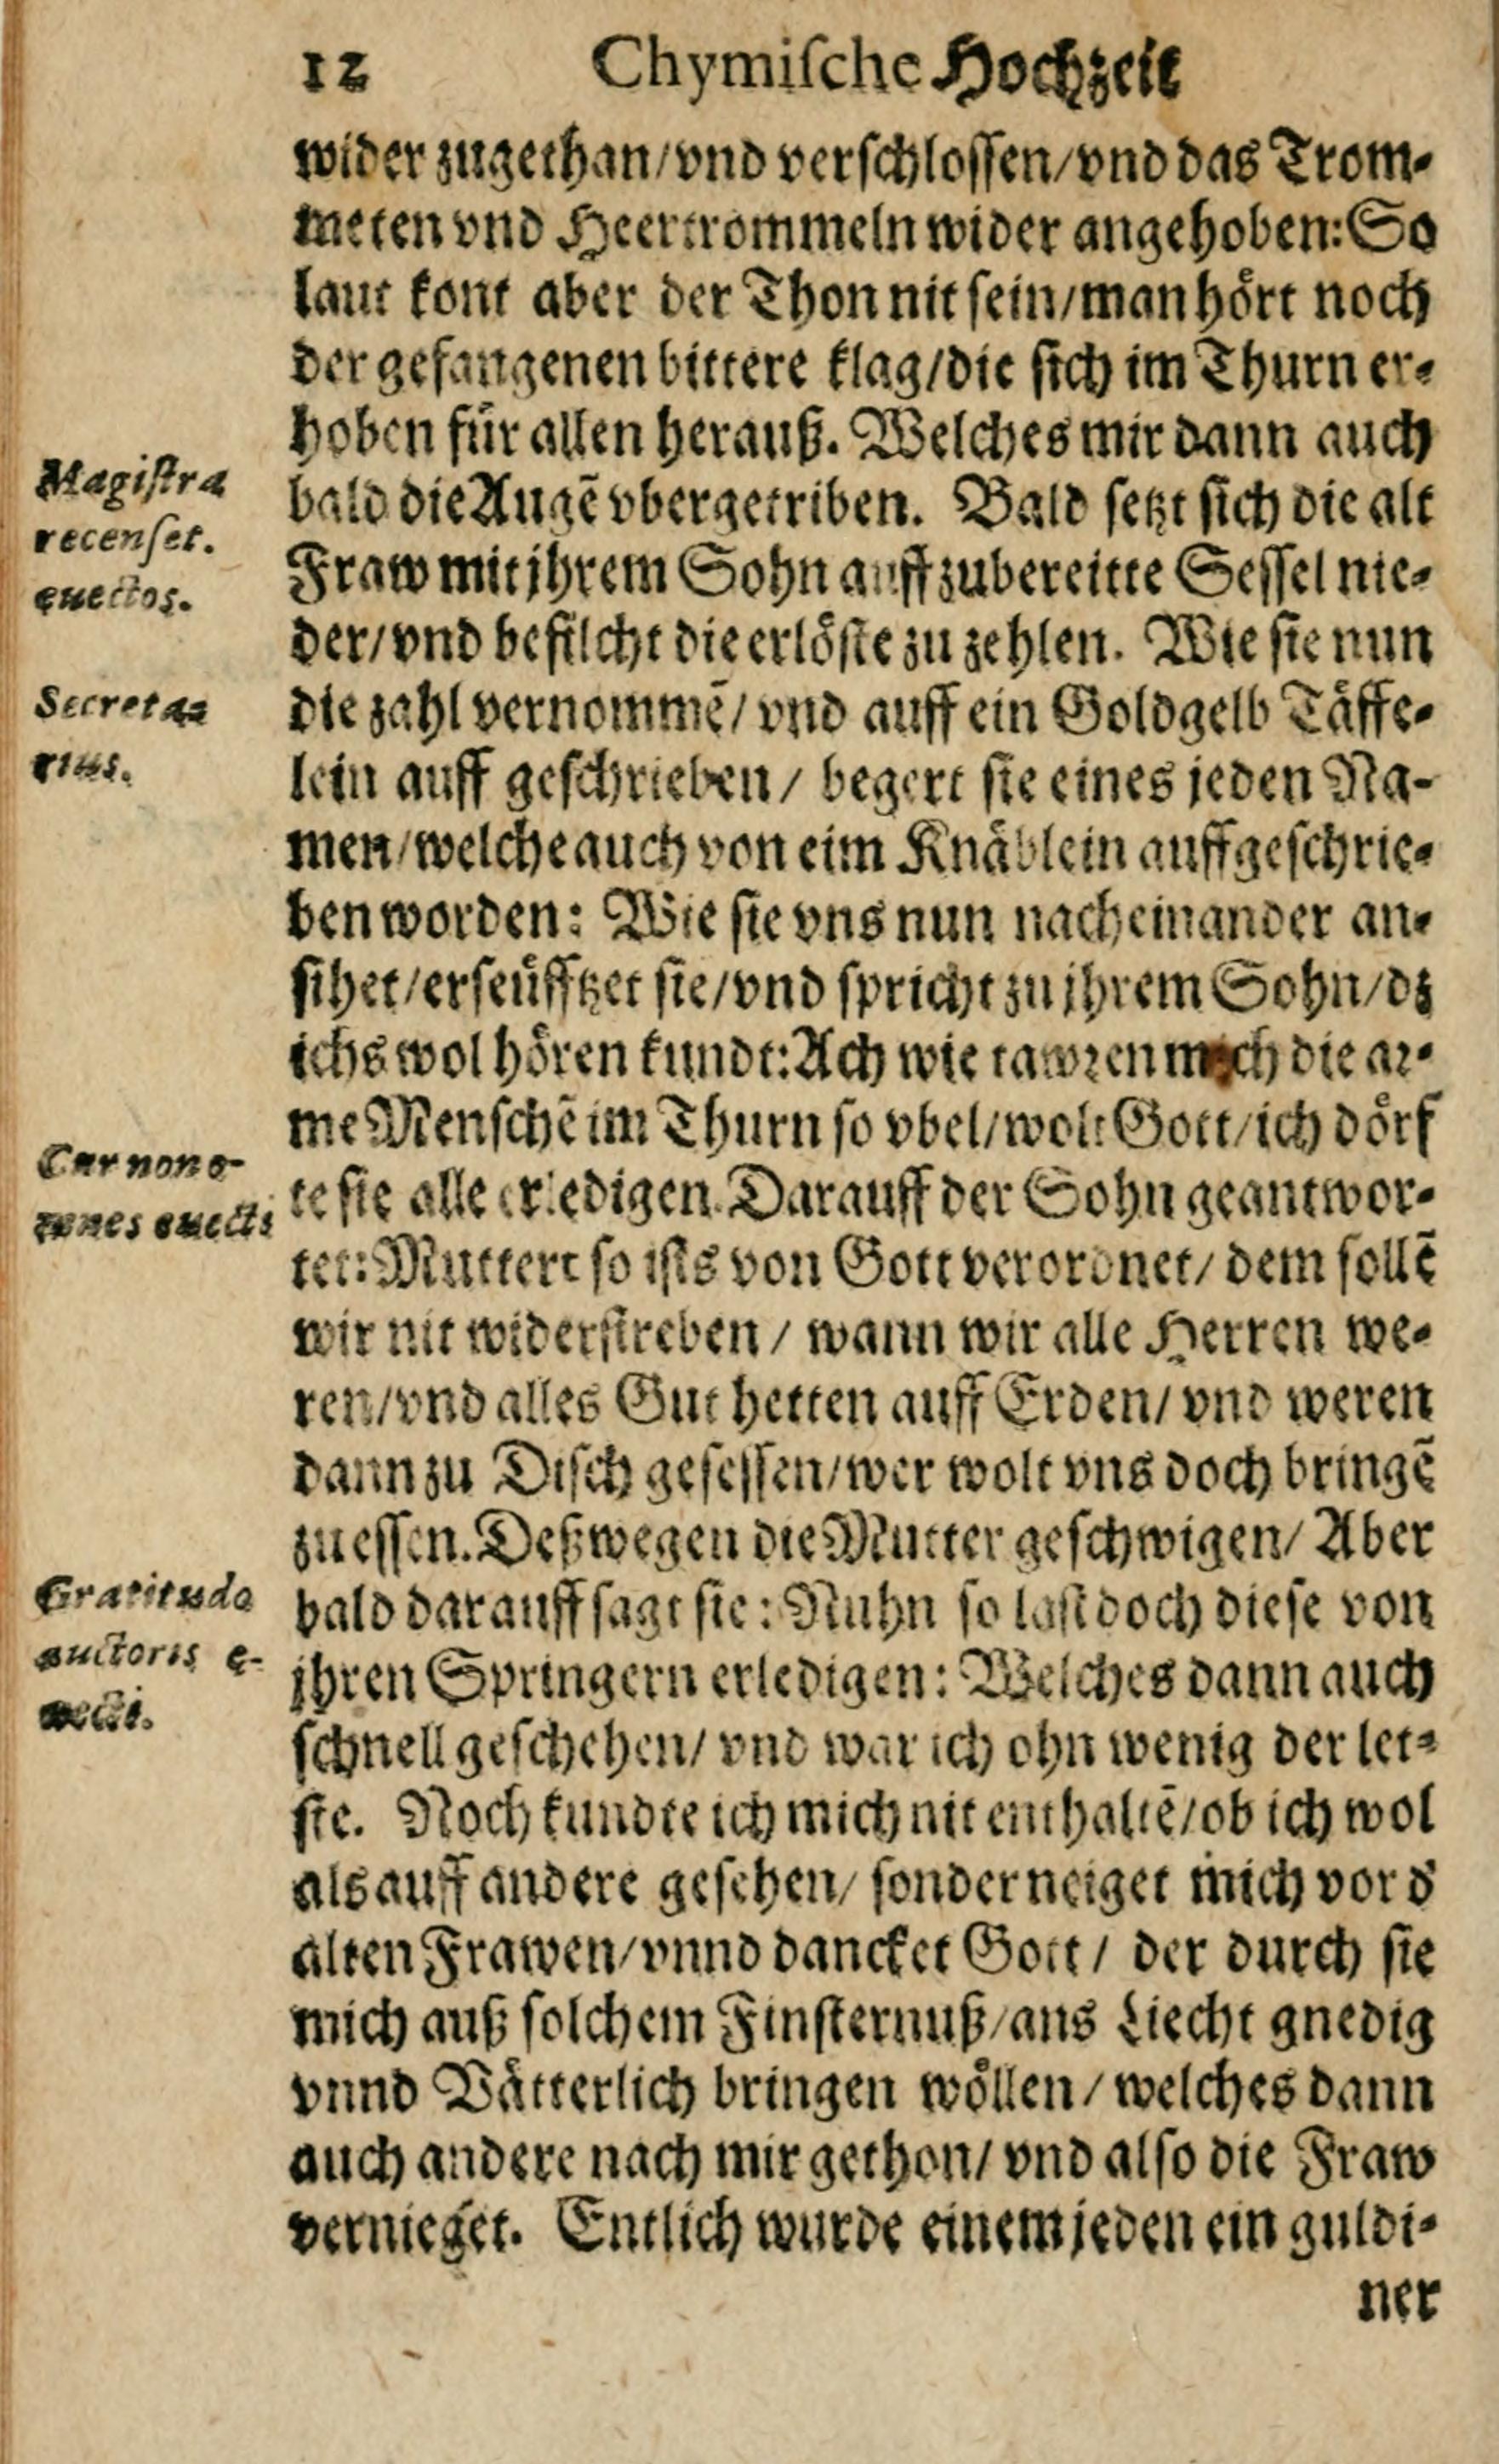 12 Chymiſche Hochzeit
wider zugethan/vnd verſchloſſen/vnd das Trom-
meten vnd Heertrommeln wider angehoben: So
laut kont aber der Thon nit ſein/man hört noch
der gefangenen bittere klag/die ſich im Thurn er-
hoben für allen herauß. Welches mir dann auch
Magiſtra
recenſet.
euectos.
bald die Augē vbergetriben. Bald ſetzt ſich die alt
Fraw mit jhrem Sohn auff zubereitte Seſſel nie-
der/vnd befilcht die erlöſte zu zehlen. Wie ſie nun
Secreta-
rius.
die zahl vernommē/vnd auff ein Goldgelb Täffe-
lein auff geſchrieben/ begert ſie eines jeden Na-
men/welche auch von eim Knäblein auffgeſchrie-
ben worden: Wie ſie vns nun nacheinander an-
ſihet/erſeüfftzet ſie/vnd ſpricht zu jhrem Sohn/dz
ichs wol hören kundt: Ach wie tawren mich die ar-
me Menſchē im Thurn ſo vbel/wolt Gott/ich dörf
Cur non o-
mnes euecti
te ſie alle erledigen. Darauff der Sohn geantwor-
tet: Mutter ſo iſts von Gott verordnet/ dem ſollē
wir nit widerſtreben/ wann wir alle Herren we-
ren/vnd alles Gut hetten auff Erden/ vnd weren
dann zu Diſch geſeſſen/wer wolt vns doch bringē
zu eſſen. Deßwegen die Mutter geſchwigen/ Aber
Gratitudo
auctoris e-
uecti.
bald darauff ſagt ſie: Nuhn ſo laſt doch dieſe von
jhren Springern erledigen: Welches dann auch
ſchnell geſchehen/ vnd war ich ohn wenig der let-
ſte. Noch kundte ich mich nit enthaltē/ob ich wol
als auff andere geſehen/ ſonder neiget mich vor d'
alten Frawen/vnnd dancket Gott/ der durch ſie
mich auß ſolchem Finſternuß/ans Liecht gnedig
vnnd Vätterlich bringen wöllen/welches dann
auch andere nach mir gethon/ vnd alſo die Fraw
vernieget. Entlich wurde einem jeden ein guldi-
ner